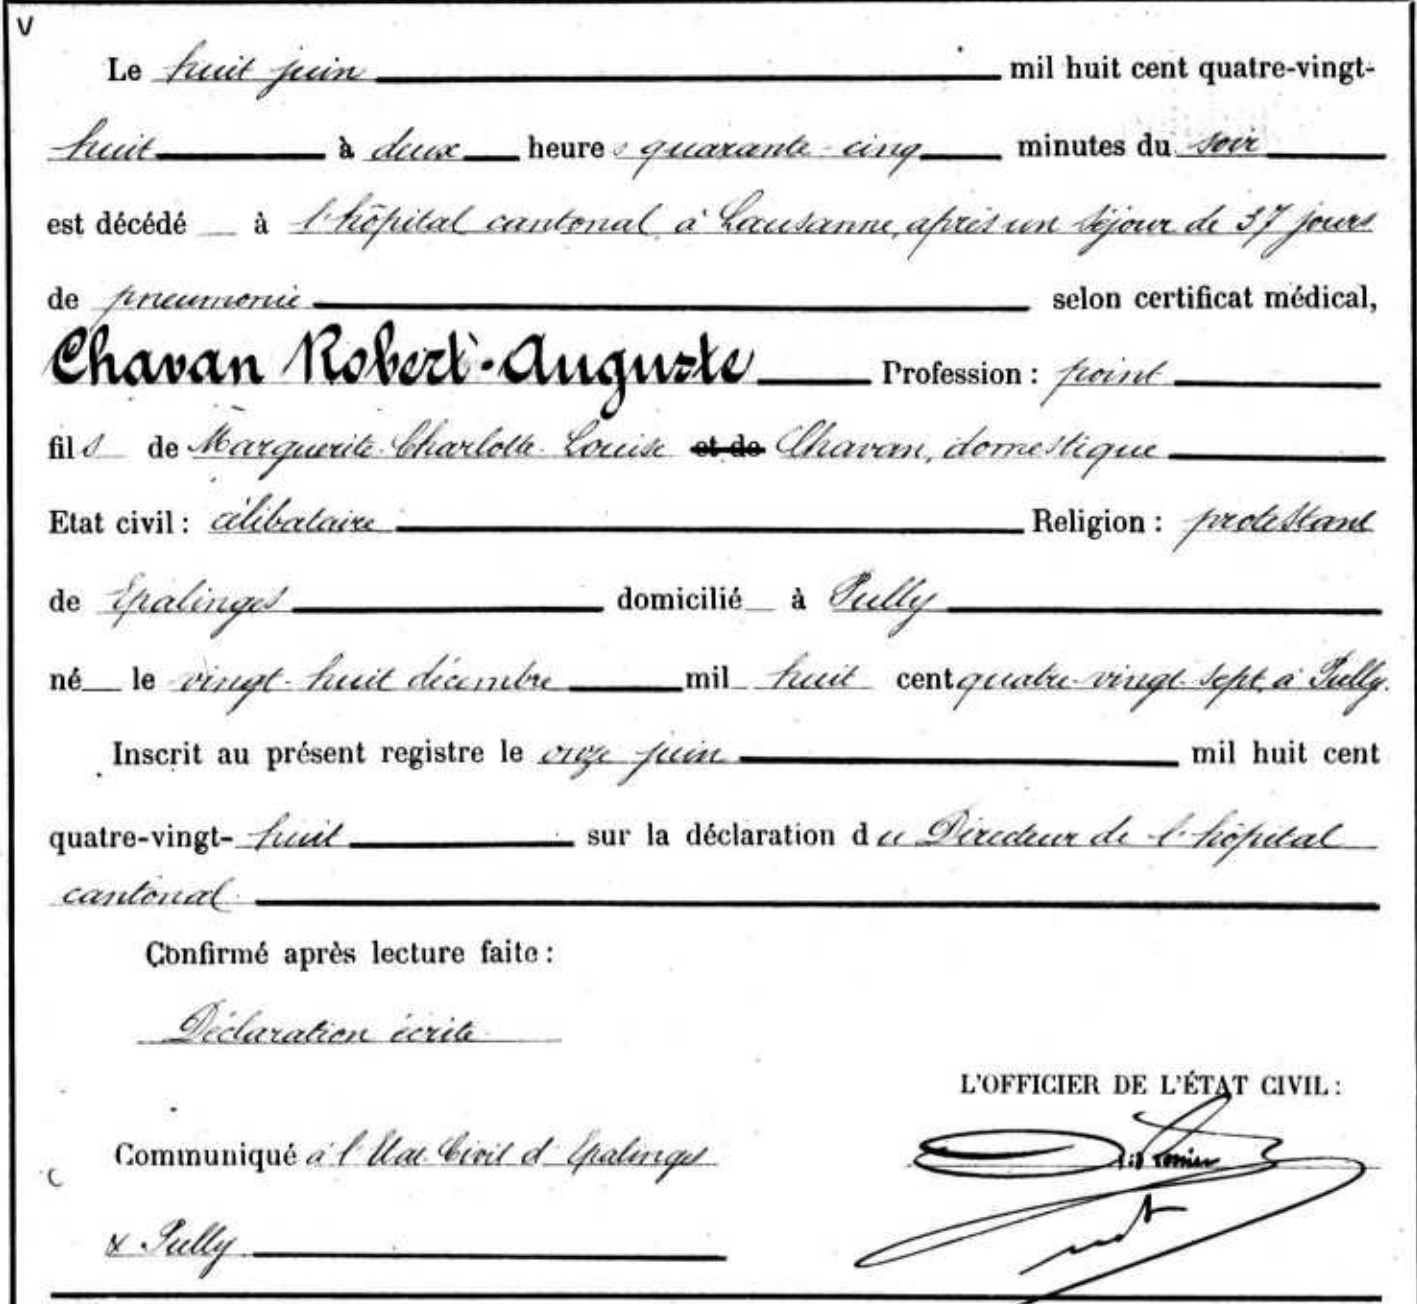 V
Le huit juin mil huit cent quatre-vingt-
huit à deux heures quarante-cinq minutes du soir
est décédé à l'hôpital cantonal à Lausanne, après un séjour de 37 jours
de pneumonie selon certificat médical,
Chavan Robert-Auguste Profession : point
fils de Marguerite-Charlotte-Louise et de Chavan, domestique
Etat civil : célibataire Religion : protestant
de Epalinges domicilié à Pully
né le vingt-huit décembre mil huit cent quatre-vingt-sept, à Pully.
Inscrit au présent registre le onze juin mil huit cent
quatre-vingt-huit sur la déclaration du Directeur de l'hôpital
cantonal.
Confirmé après lecture faite :
Déclaration écrite
L'OFFICIER DE L'ÉTAT CIVIL :
Communiqué à l'Etat-Civil d'Epalinges
& Pully